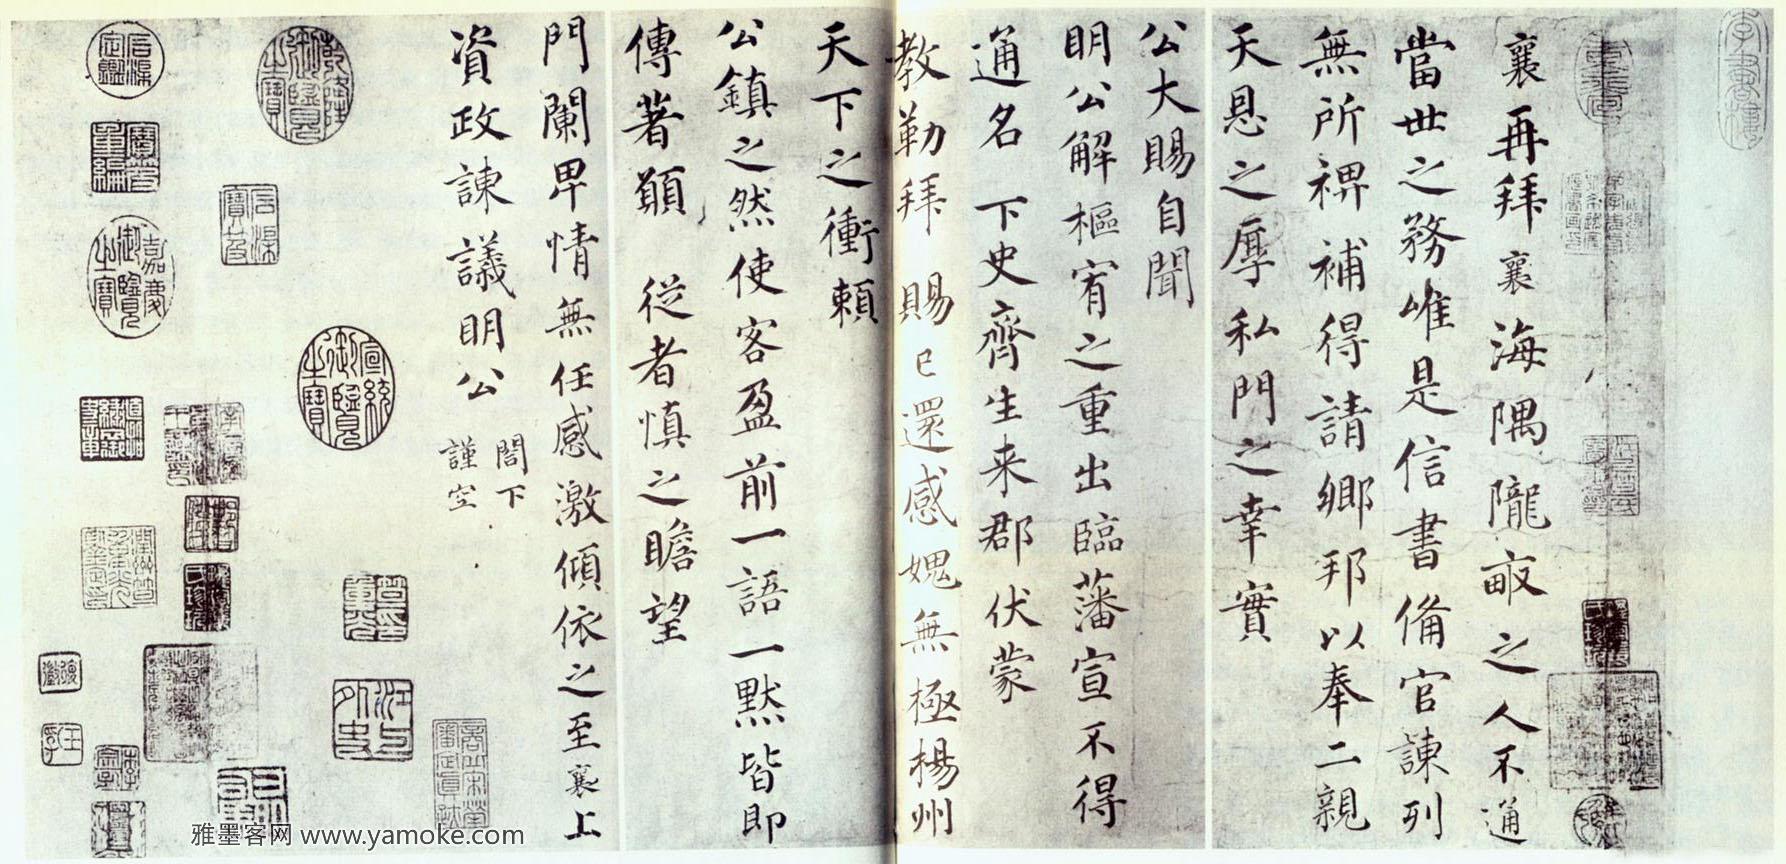 襄再拜襄海隅隴畝之人不通
當世之務唯是信書備官諫列
無所裨補得請鄉邦以奉二親
天恩之厚私門之幸實
公大賜自聞
明公解樞宥之重出臨藩宣不得
通名 下史齊生来郡伏蒙
教勒拜 賜已還感媿無極楊州
天下之衝賴
公鎮之然使客盈前一語一黙皆即
傳著願 從者慎之瞻望
門闌卑情無任感激傾依之至襄上
資政諫議明公 閤下
謹空
嘉慶御覽之寶
宣統御覽之寶
乾隆御覽之寶
石渠寶笈
雅墨客网 www.yamoke.com